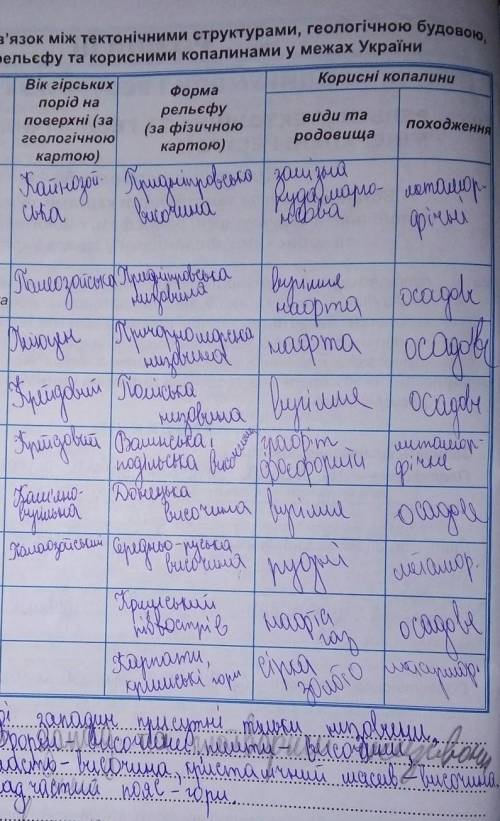 в'язок між тектонічними структурами, геологічною будовою,
рельєфу та корисними копалинами у межах України
Вік гірських
порід на
поверхні (за
геологічною
картою)
Форма
рельєфу
(за фізичною
картою)
Корисні копалини
види та
родовища
походження
Кайнозой-
ська
Придніпровська
височина
залізна
руда, марган-
метамор-
фічні
Палеозойська
Придніпровська
низовина
вугілля
нафта
осадове
Причорноморська
низовина
нафта
осадове
Крейдовий
Поліська
низовина
вугілля
осадове
Крейдовий
Волинська,
подільська височини
графіт
фосфорити
метамор-
фічне
Кам'яно-
вугільна
Донецька
височина
вугілля
осадове
Середньо-руська
височина
рудні
метамор.
Кримський
півострів
нафта
газ
осадове
Карпати,
кримські гори
сірка
золото
западин присутні тільки низовини.
височина
височина, кристалічний масив - височина.
пояс - гори.